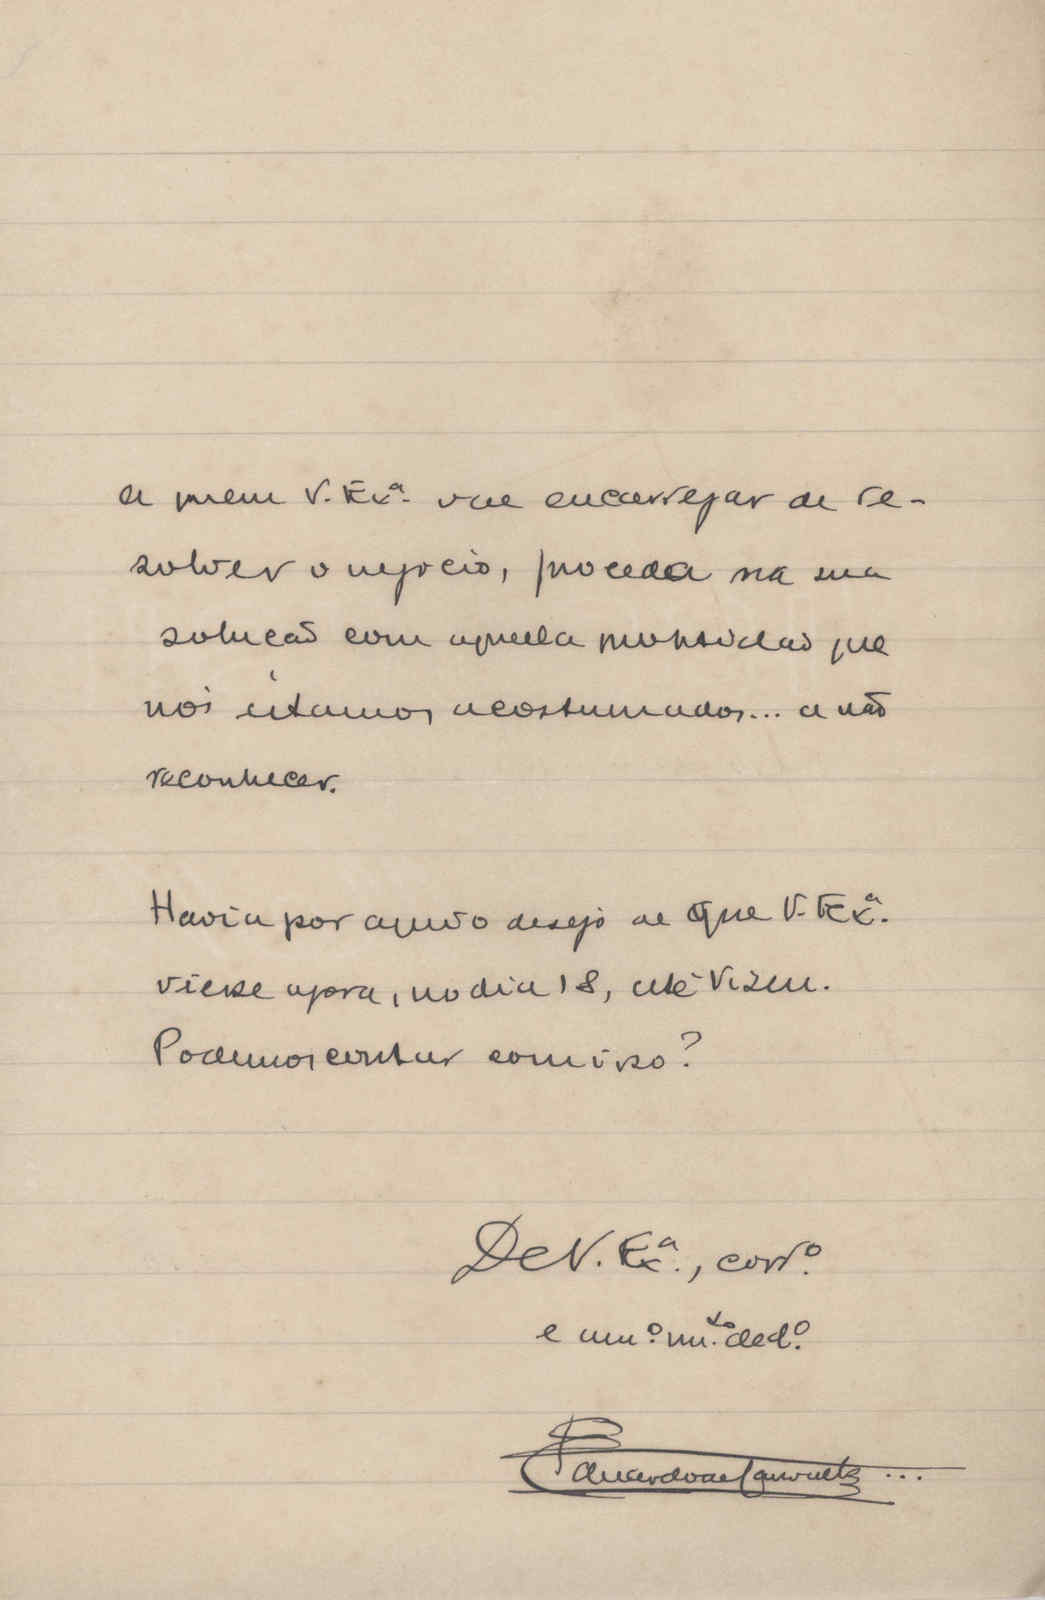 a quem V. Exª. vae encarregar de re-
solver o negocio, proceda na sua
solução com aquella promptidão que
nós estamos acostumados... a não
reconhecer.
Havia por aqui o desejo de que V. Exª.
viesse agora, no dia 18, até Vizeu.
Podemos contar com isso?
De V. Exª., corrº.
e amº. mᵗᵒ. dedº.
Eduardo de ...